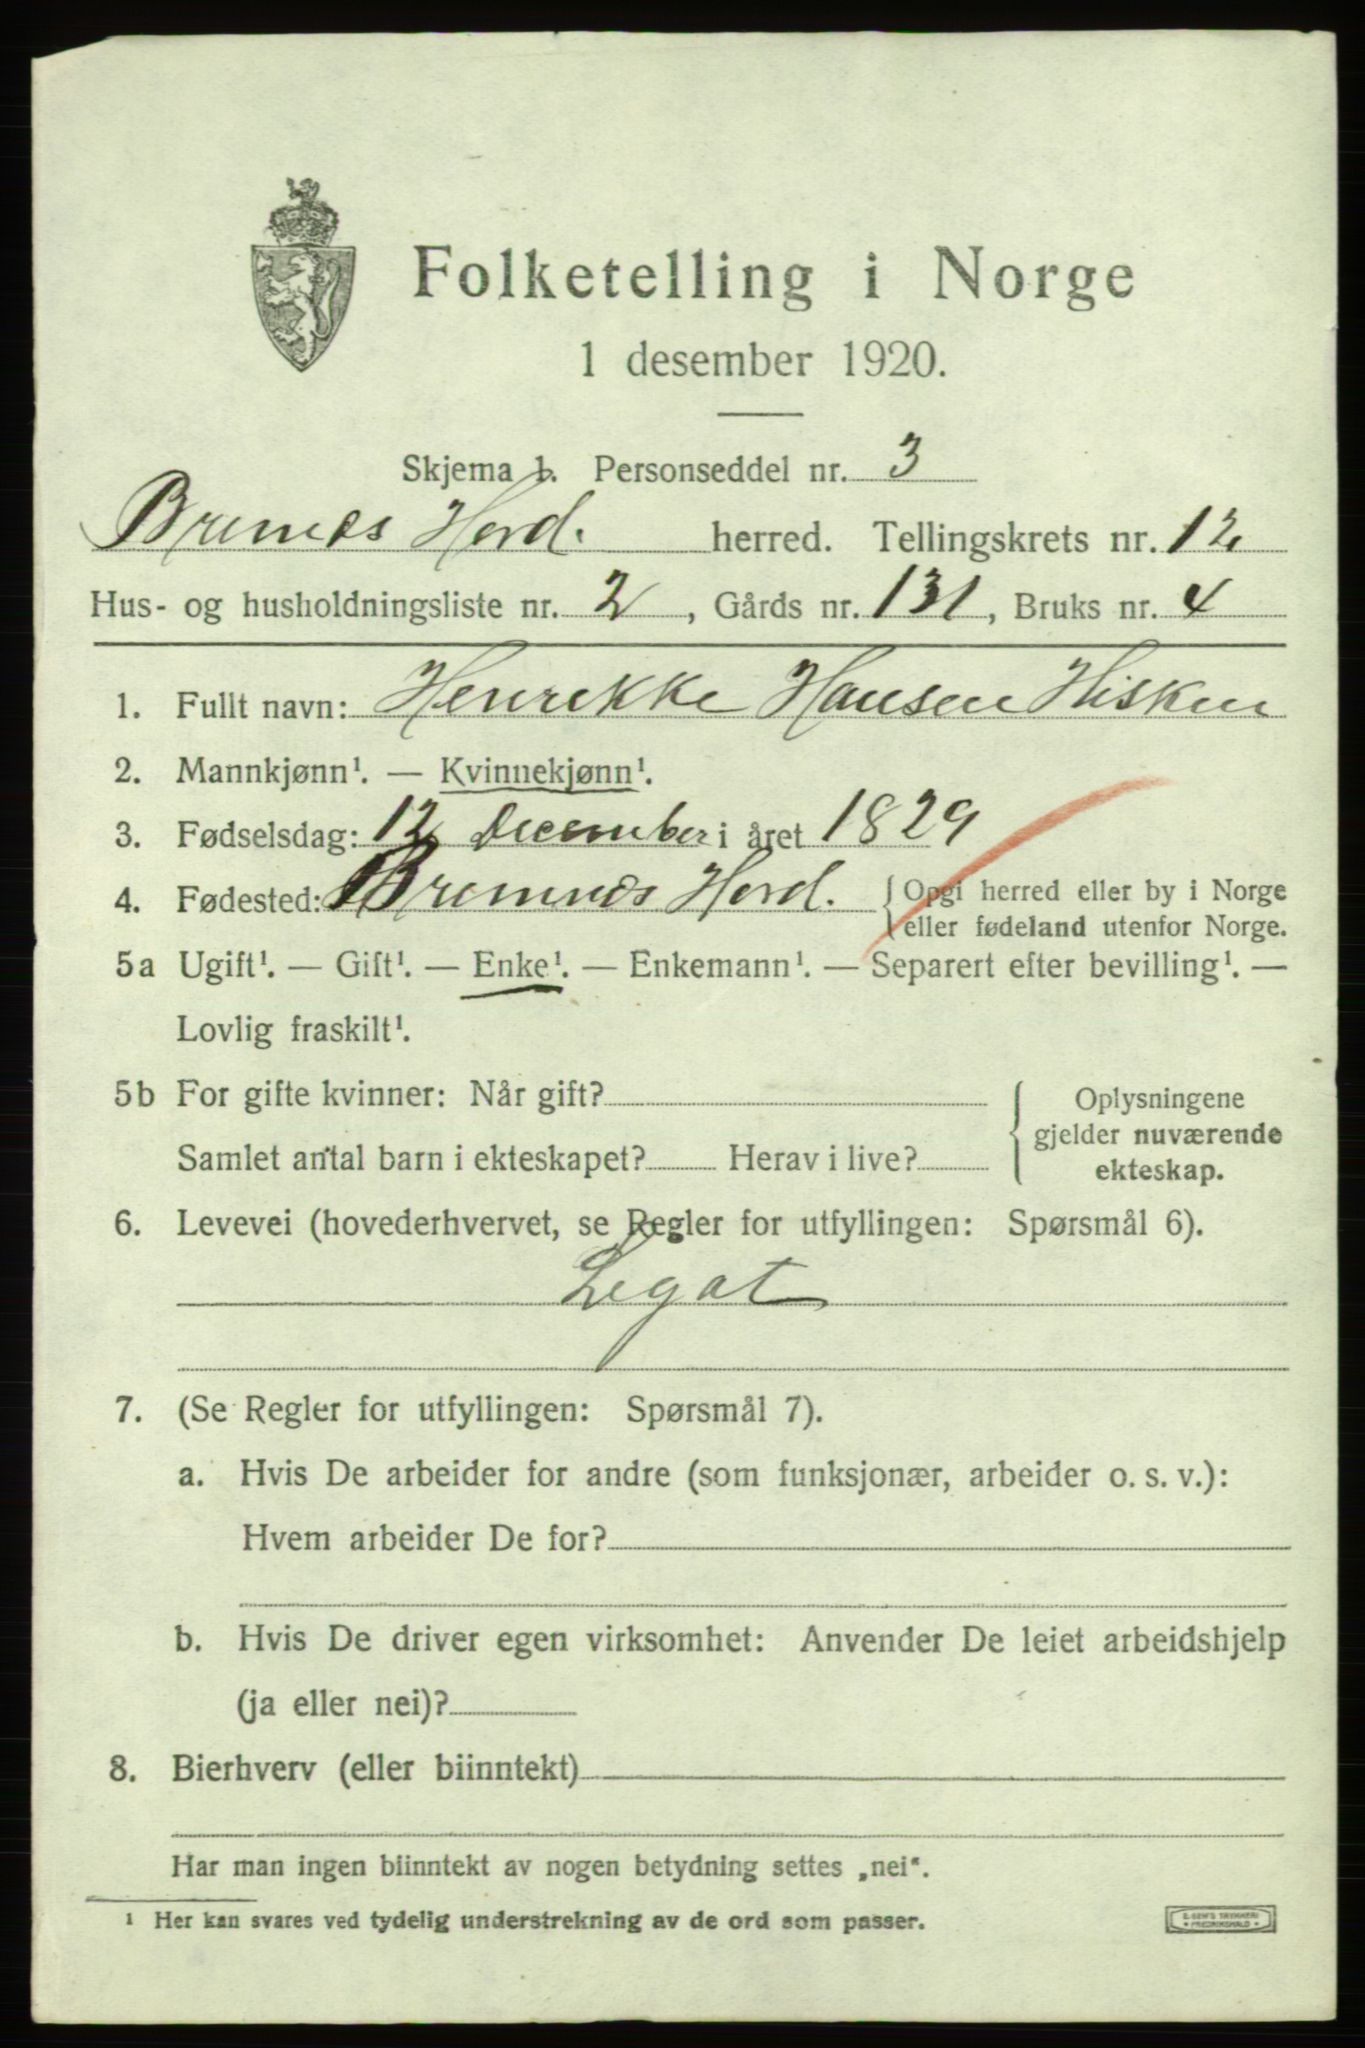 Folketelling i Norge
1 desember 1920.
Skjema 1. Personseddel nr. 3
Bremnes Hord. herred. Tellingskrets nr. 12
Hus- og husholdningsliste nr. 2, Gårds nr. 131, Bruks nr. 4
1. Fullt navn: Henrikke Hansen Hisken
2. Mannkjønn¹. — Kvinnekjønn¹.
3. Fødselsdag: 12 December i året 1829
4. Fødested: Bremnes Hord. { Opgi herred eller by i Norge
eller fødeland utenfor Norge.
5a Ugift¹. — Gift¹. — Enke¹. — Enkemann¹. — Separert efter bevilling¹. —
Lovlig fraskilt¹.
5b For gifte kvinner: Når gift?
Samlet antal barn i ekteskapet? Herav i live?
{ Oplysningene
gjelder nuværende
ekteskap.
6. Levevei (hovederhvervet, se Regler for utfyllingen: Spørsmål 6).
Legat
7. (Se Regler for utfyllingen: Spørsmål 7).
a. Hvis De arbeider for andre (som funksjonær, arbeider o. s. v.):
Hvem arbeider De for?
b. Hvis De driver egen virksomhet: Anvender De leiet arbeidshjelp
(ja eller nei)?
8. Bierhverv (eller biinntekt)
Har man ingen biinntekt av nogen betydning settes „nei“.
¹ Her kan svares ved tydelig understrekning av de ord som passer.